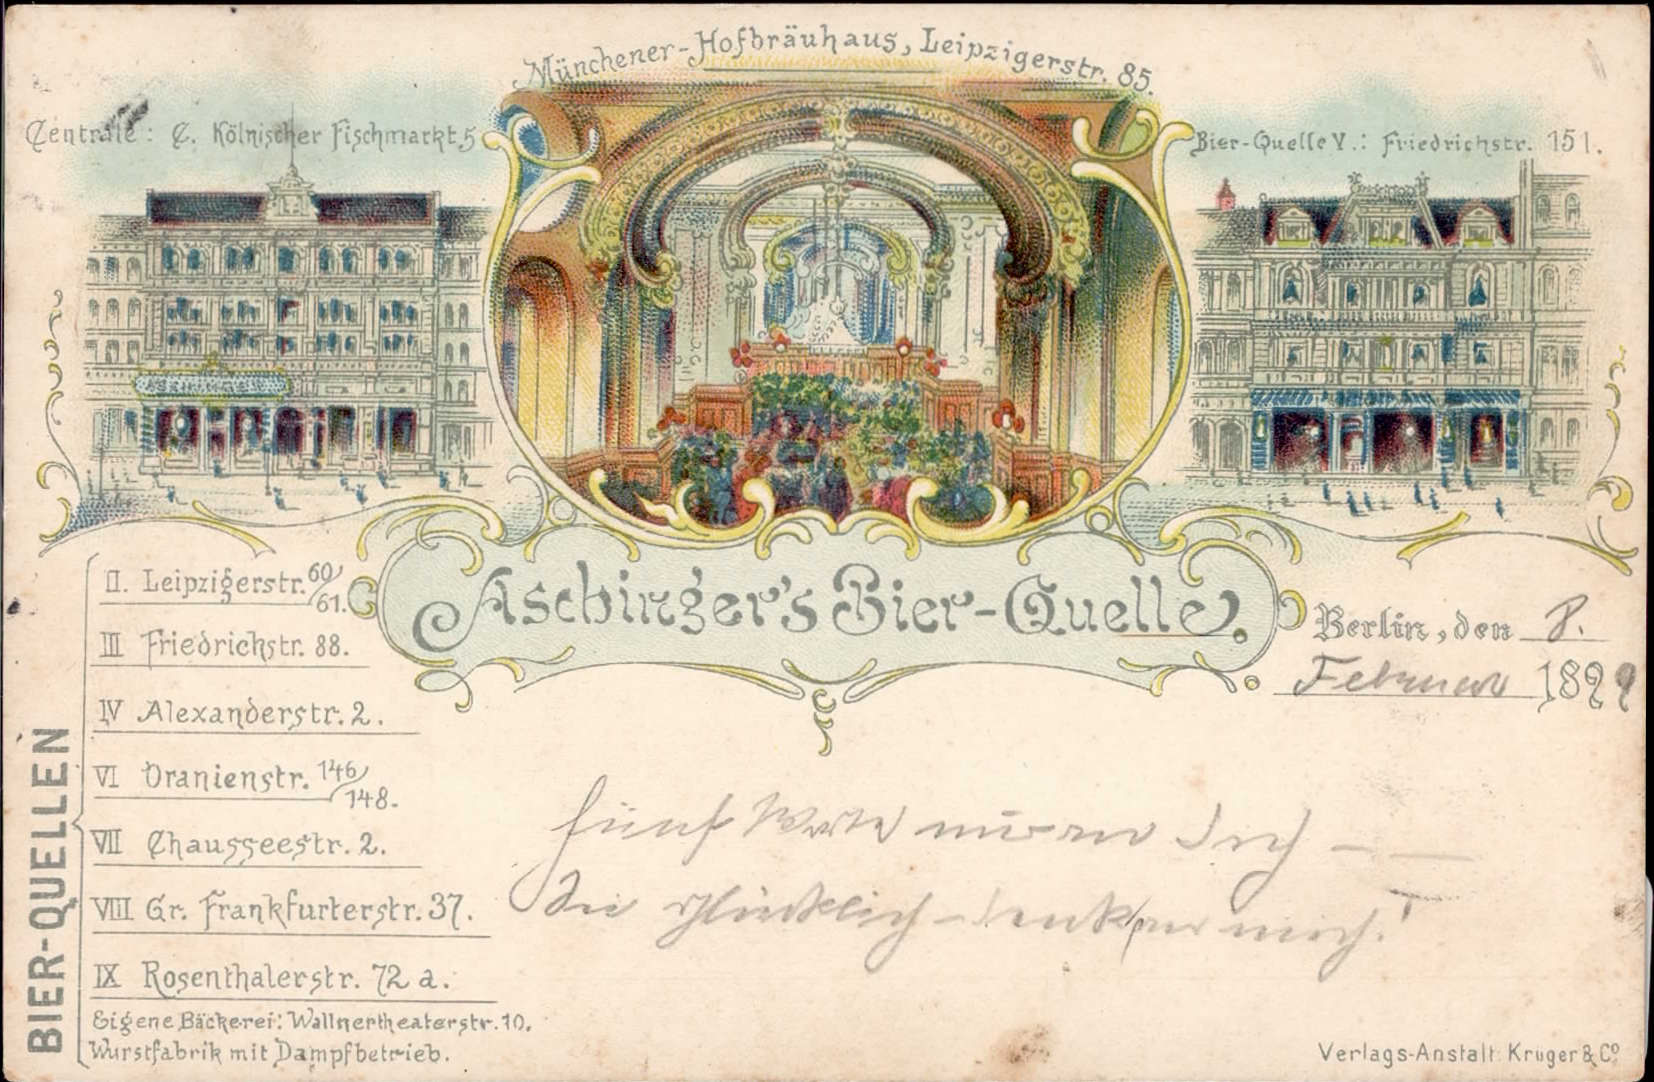 Münchener-Hofbräuhaus, Leipzigerstr. 85.
Centrale: C. Kölnischer Fischmarkt 5
Bier-Quelle V.: Friedrichstr. 151.
ASCHINGER
Aschinger's Bier-Quelle.
Berlin, den 8.
Februar 1899
BIER-QUELLEN
II. Leipzigerstr. 60/61.
III Friedrichstr. 88.
IV Alexanderstr. 2.
VI Oranienstr. 146/148.
VII Chausseestr. 2.
VIII Gr. Frankfurterstr. 37.
IX Rosenthalerstr. 72 a.
Eigene Bäckerei: Wallnertheaterstr. 10.
Wurstfabrik mit Dampfbetrieb.
fünf Worte nur an Dich —
Sei glücklich – denk an mich!
Verlags-Anstalt Krüger & Co